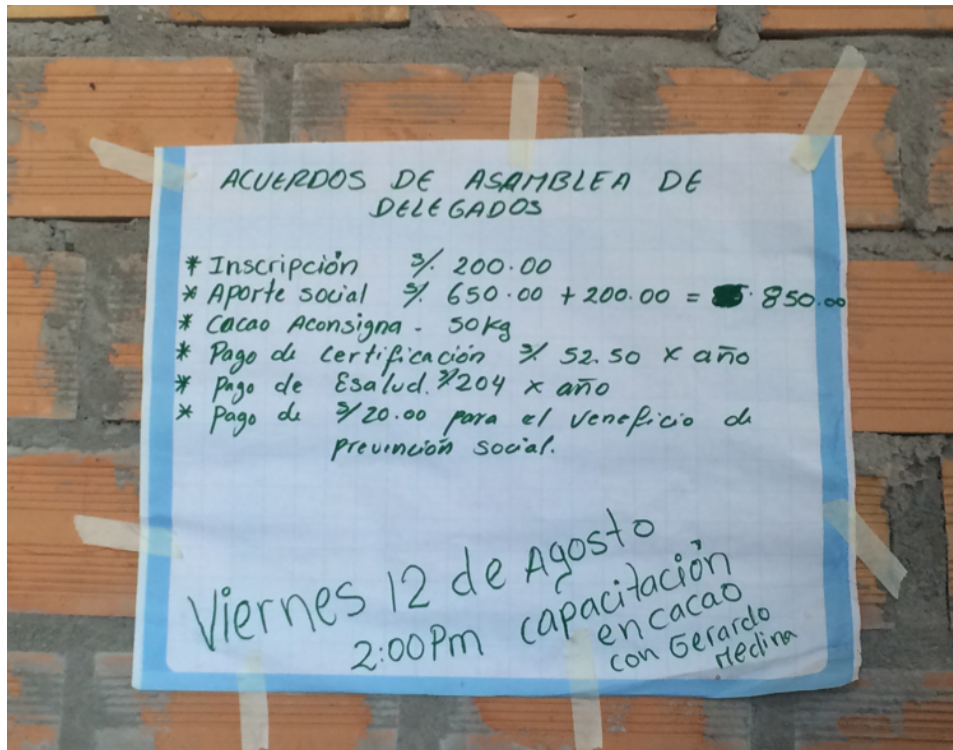 ACUERDOS DE ASAMBLEA DE
DELEGADOS
* Inscripción S/. 200.00
* Aporte social S/. 650.00 + 200.00 = 850.00
* Cacao Aconsigna - 50kg
* Pago de certificación S/. 52.50 x año
* Pago de Esalud. S/204 x año
* Pago de S/20.00 para el veneficio de
prevención social.
Viernes 12 de Agosto
2:00Pm capacitación
en cacao
con Gerardo
Medina